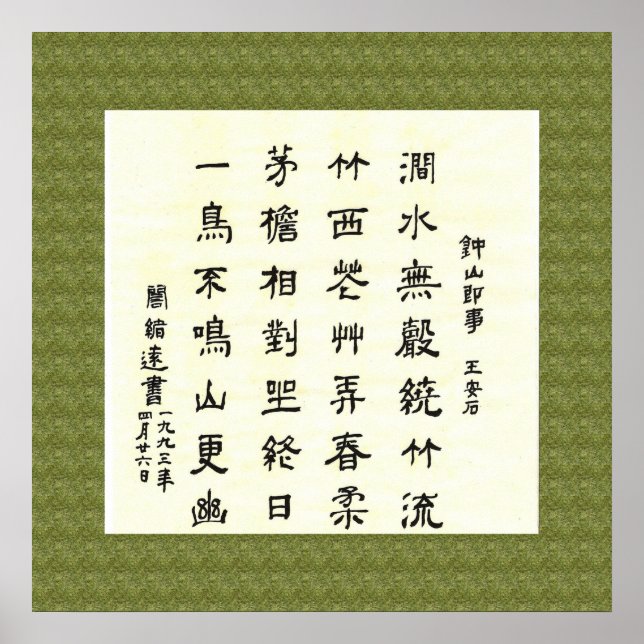 鈡山即事 王安石
澗水無聲繞竹流
竹西花艸弄春柔
茅檐相對坐終日
一鳥不鳴山更幽
遠書
一九九三年
四月廿六日